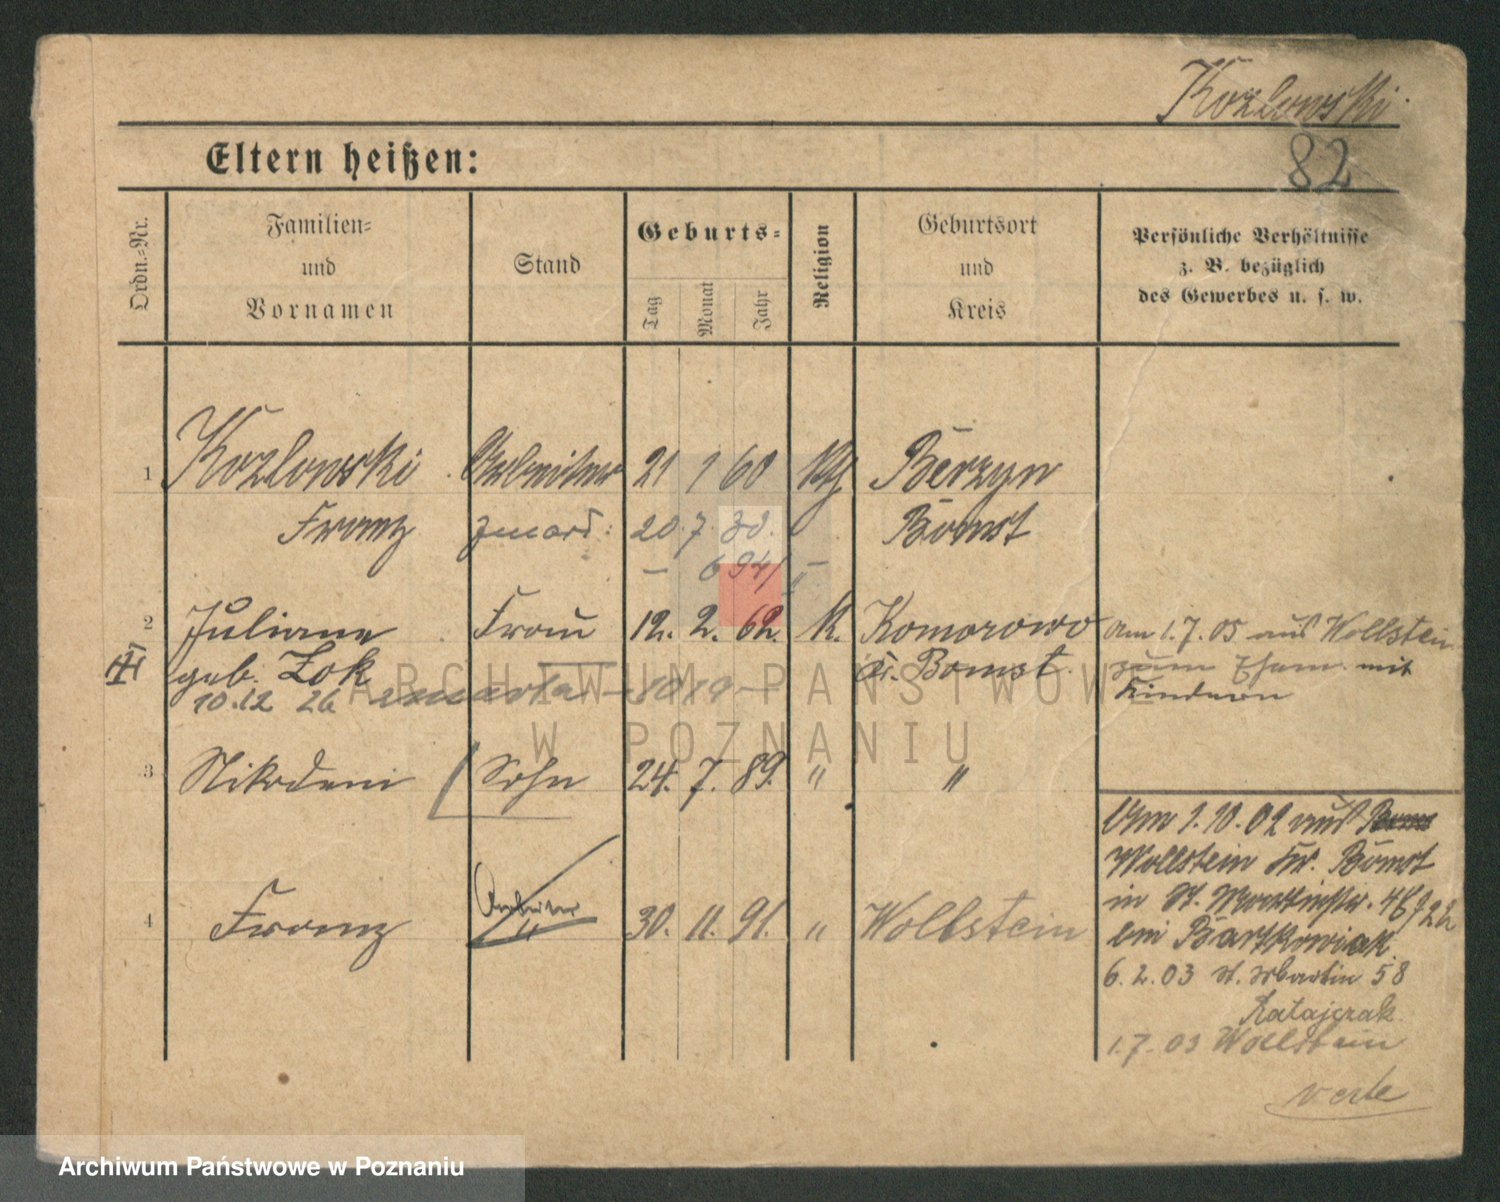 Kozlowski
82
Eltern heißen:
Ordn.-Nr.
Familien-
und
Vornamen
Stand
Geburts-
Tag
Monat
Jahr
Religion
Geburtsort
und
Kreis
Persönliche Verhältnisse
z. B. bezüglich
des Gewerbes u. s. w.
1 Kozlowski Arbeiter 21 1 60 Berzyn
Franz 20. 7. Bomst
2 Juliane Frau 12. 2. 62. K. Komorowo am 1.7.05 aus Wollstein
III geb. Zok Kr. Bomst. zum Ehem. mit
10.12 26 Kindern
3 Nikodem Sohn 24. 7. 89. " "
Am 1.10.02 aus
Wollstein Kr. Bomst
4 Franz Arbeiter 30. 11. 91. " Wollstein in St. Martinstr.
bei Bartkowiak
6.2.03 St. Martin 58
Ratajczak
1.7.03 Wollstein
ARCHIWUM PAŃSTWOWE
W POZNANIU
Archiwum Państwowe w Poznaniu